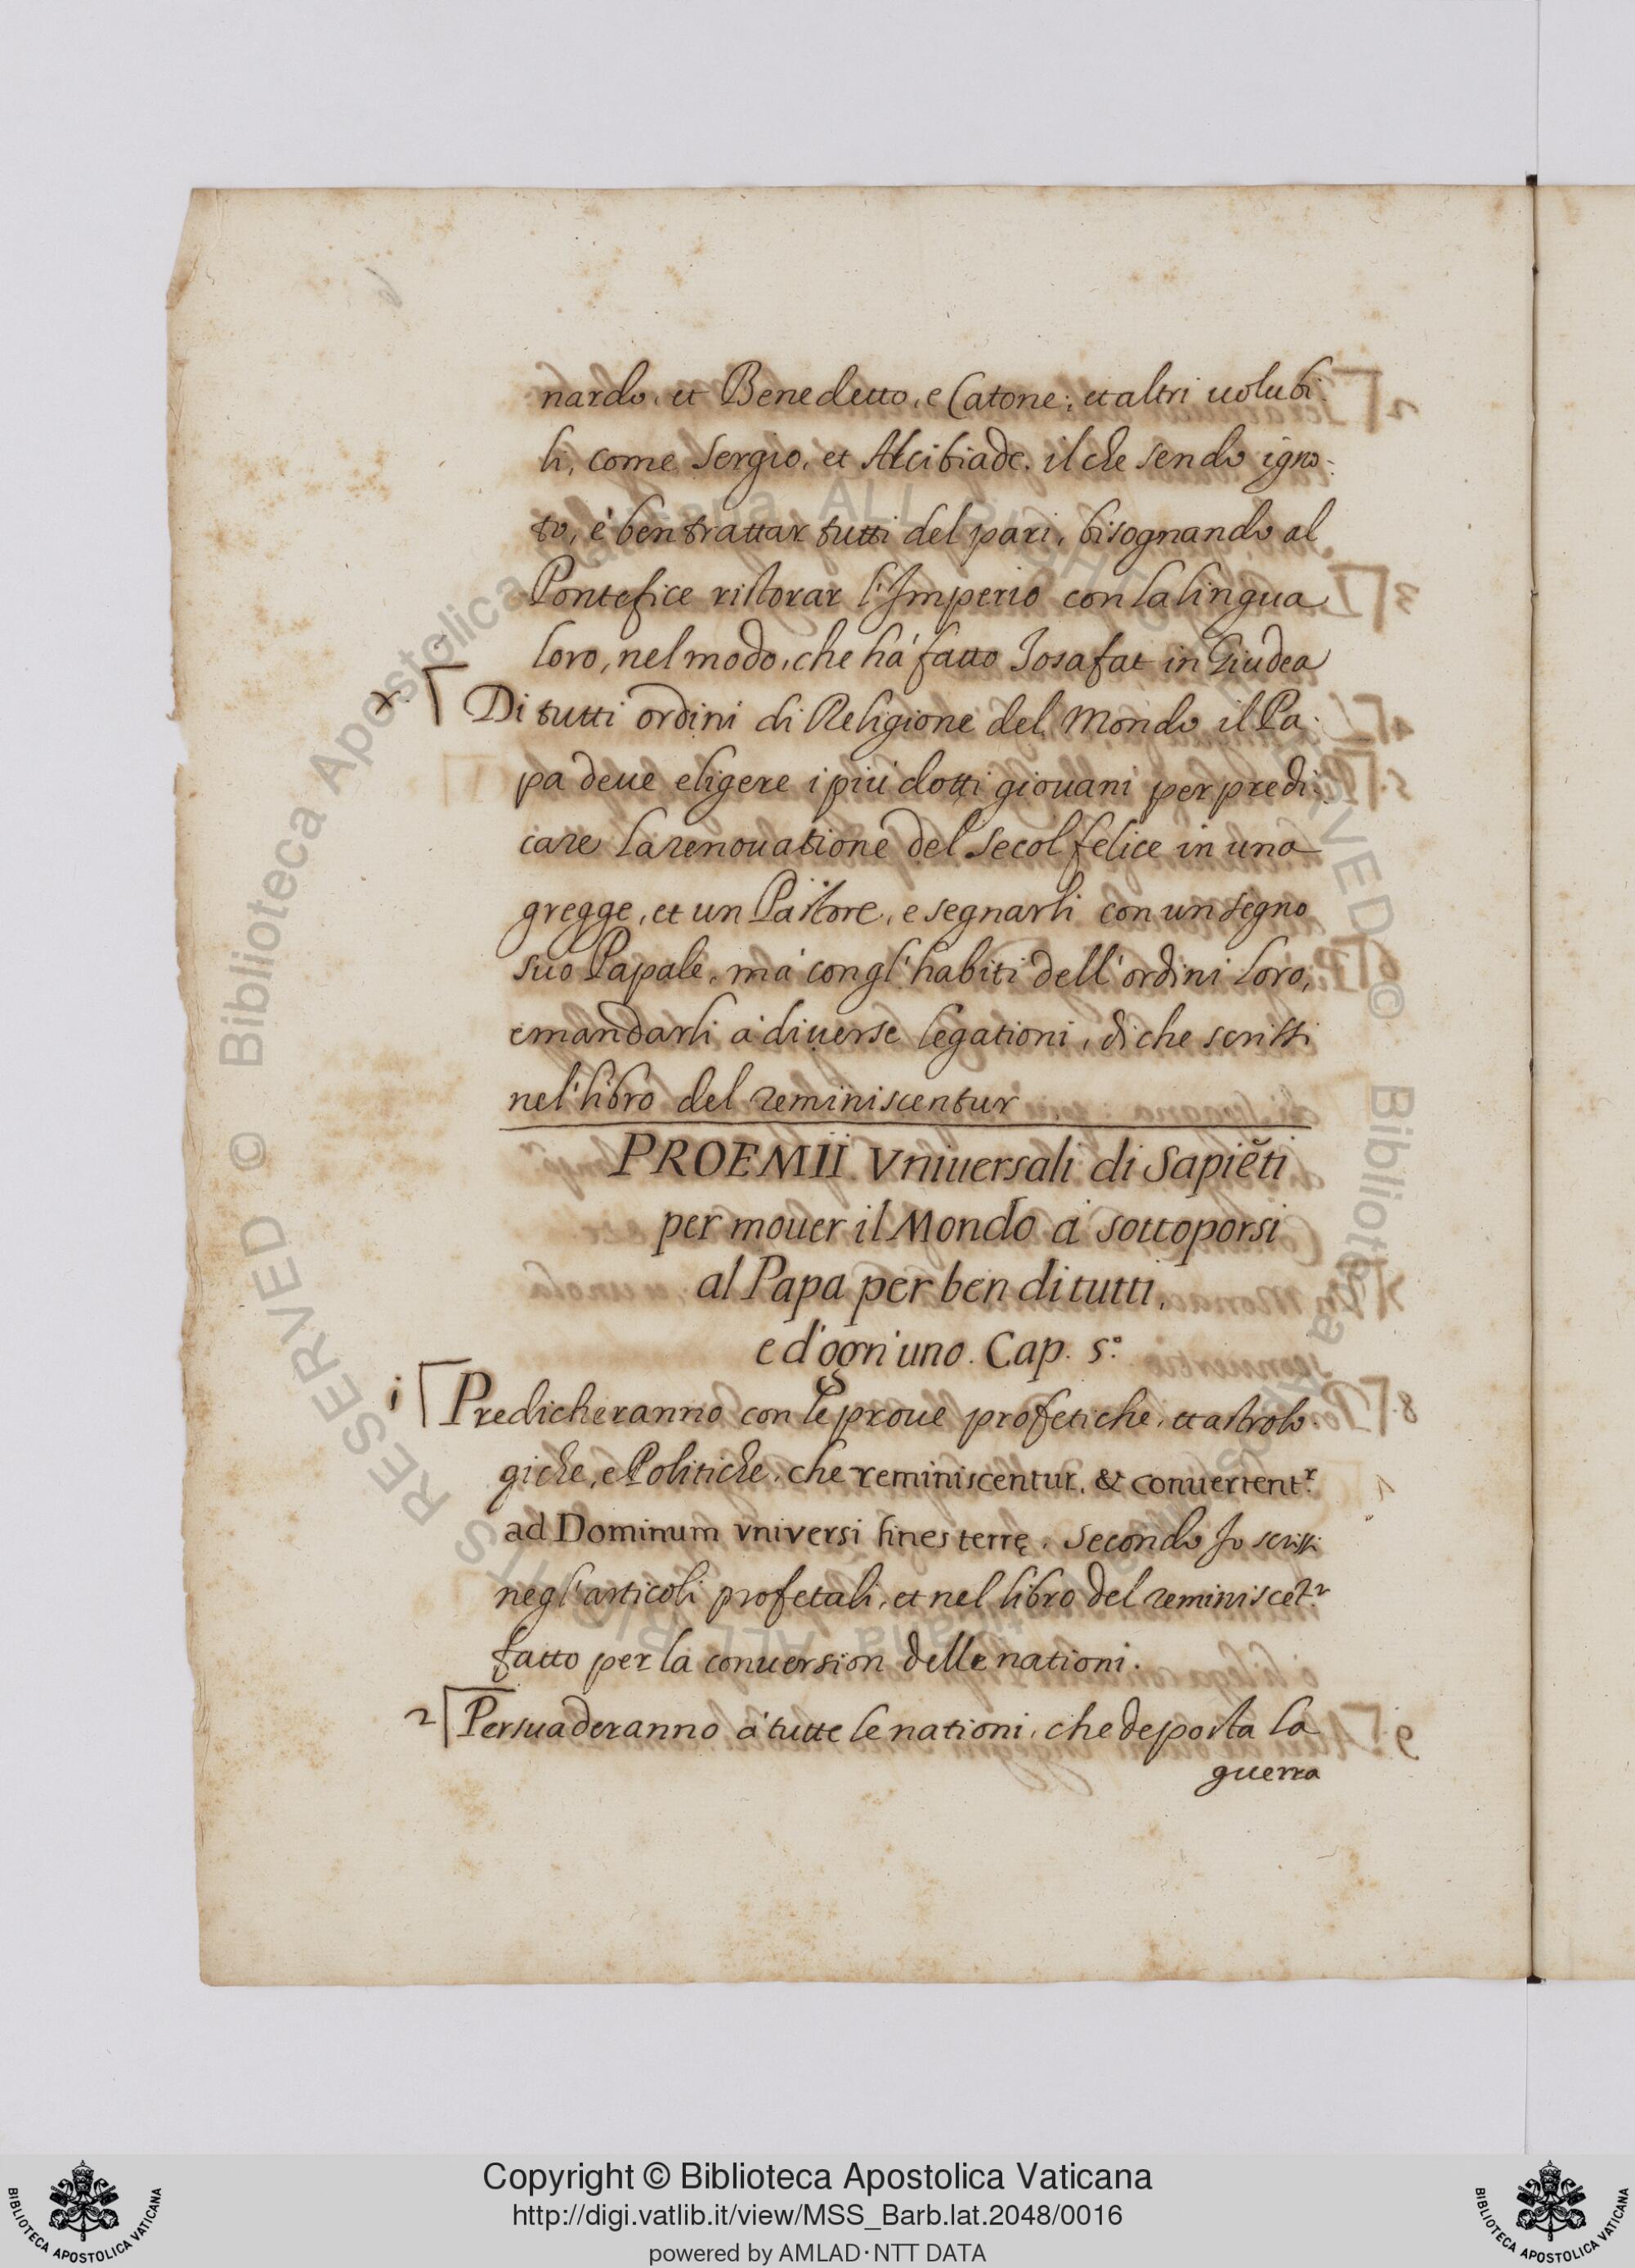 nardo, et Benedetto, e Catone; et altri uolubi:
li, come Sergio, et Alcibiade. il che sendo igno:
to, è ben trattar tutti del pari, bisognando al
Pontefice ristorar l'Imperio con la lingua
loro, nel modo, che hà fatto Josafat in Giudea
x. Di tutti ordini di Religione del Mondo il Pa:
pa deue eligere i più dotti giouani per predi:
care la renouatione del secol felice in una
gregge, et un Pastore, e segnarli con un segno
suo Papale, mà con gl'habiti dell'ordini loro,
e mandarli à diuerse legationi, di che scrissi
nel'libro del reminiscentur
PROEMII Vniuersali di Sapiẽti
per mouer il Mondo à sottoporsi
al Papa per ben di tutti,
e d'ogn'uno. Cap. 5º
i Predicheranno con le proue profetiche, et astrolo:
giche, e Politiche, che reminiscentur, & conuertentʳ
ad Dominum vniversi fines terrę. Secondo Io scrissi
negl'articoli profetali, et nel libro del reminiscetʳ
fatto per la conuersion delle nationi.
2 Persuaderanno à tutte le nationi, che deposta la
guerra
Biblioteca Apostolica Vaticana ALL RIGHTS RESERVED ©
Copyright © Biblioteca Apostolica Vaticana
http://digi.vatlib.it/view/MSS_Barb.lat.2048/0016
powered by AMLAD·NTT DATA
BIBLIOTECA APOSTOLICA VATICANA
BIBLIOTECA APOSTOLICA VATICANA